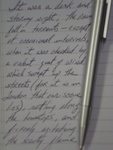 It was a dark and
stormy night; the rain
fell in torrents — except
at occasional intervals,
when it was checked by
a violent gust of wind
which swept up the
streets (for it is in
London that our scene
lies), rattling along
the housetops, and
fiercely agitating
the scanty flame